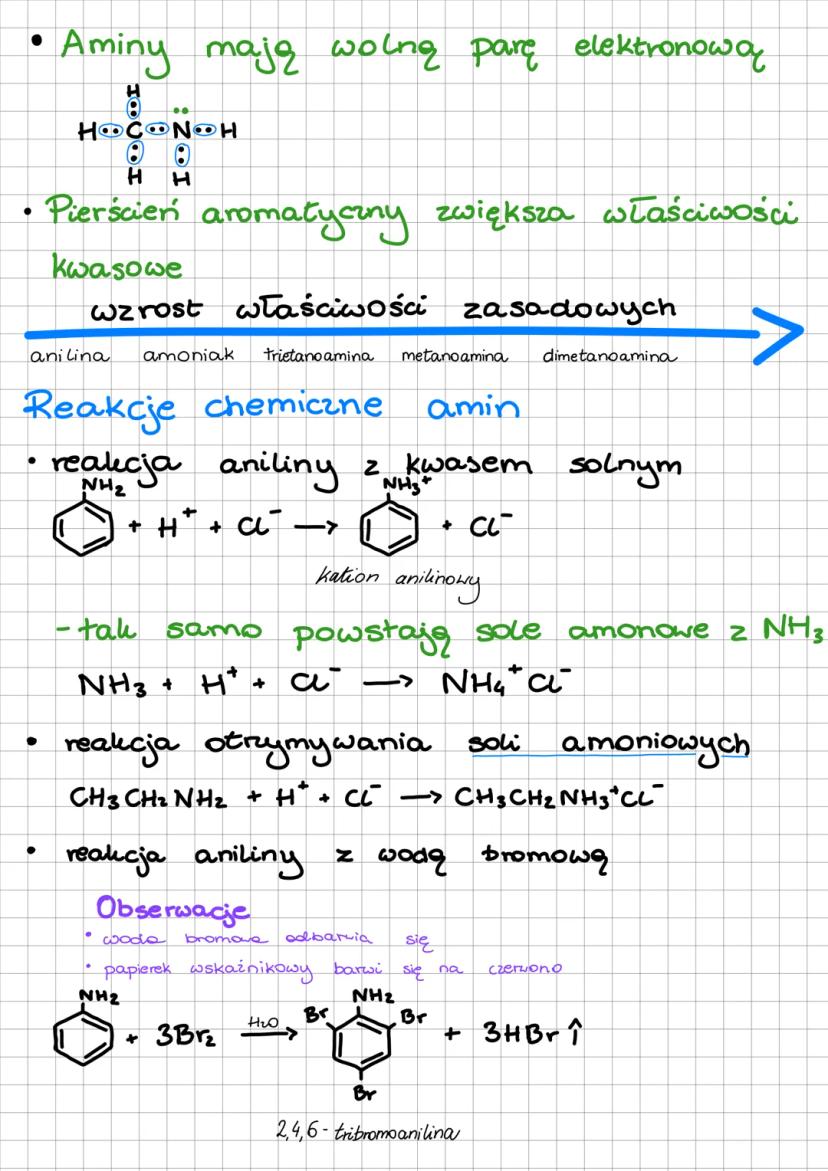 • Aminy mają wolną parę elektronową
H
H C N H
H H
• Pierścień aromatyczny zwiększa właściwości
kwasowe
wzrost właściwości zasadowych
anilina amoniak trietanoamina metanoamina dimetanoamina
Reakcje chemiczne amin
• reakcja aniliny z kwasem solnym
NH₂ NH₃⁺
+ H⁺ + Cl⁻ → + Cl⁻
kation anilinowy
- tak samo powstają sole amonowe z NH₃
NH₃ + H⁺ + Cl⁻ → NH₄⁺Cl⁻
• reakcja otrzymywania soli amoniowych
CH₃CH₂NH₂ + H⁺ + Cl⁻ → CH₃CH₂NH₃⁺Cl⁻
• reakcja aniliny z wodą bromową
Obserwacje
• woda bromowa odbarwia się
• papierek wskaźnikowy barwi się na czerwono
NH₂ NH₂
+ 3Br₂ H₂O → Br Br + 3HBr ↑
Br
2,4,6 - tribromoanilina